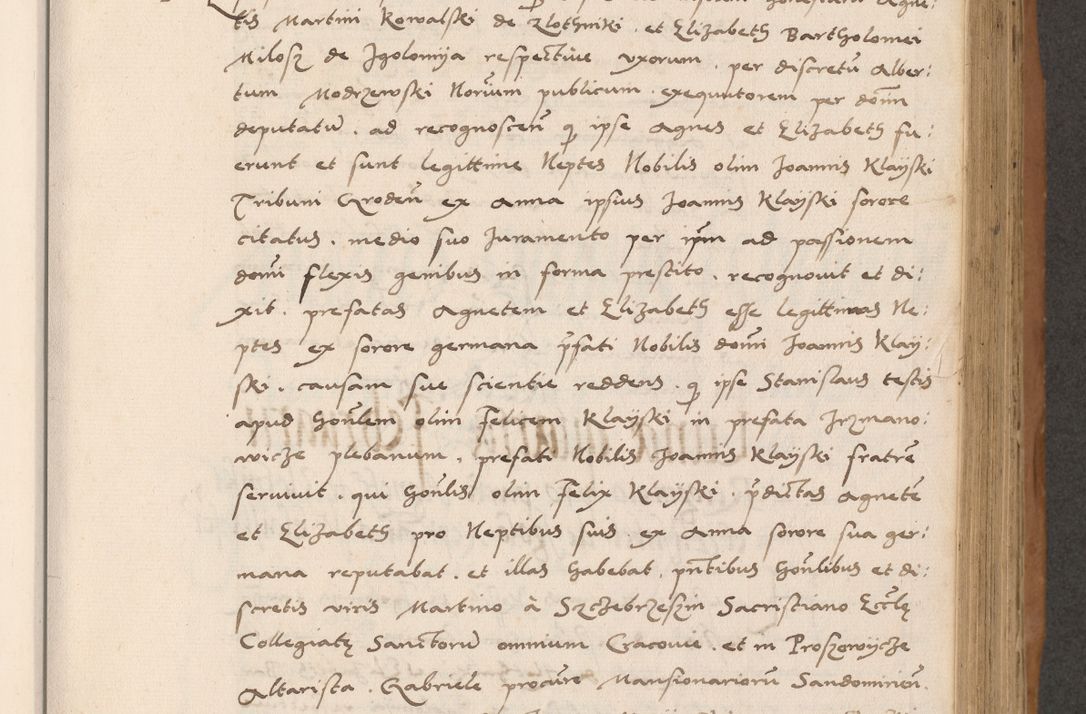 tis Martini Kowalski de Zlothniki . et Elizabeth Bartholomei
Milosz de Igolomija respective uxorum . per discretū Alber:
tum Modrzewski Norūm publicum . exequutorem per domn̄
deputatū . ad recognoscen̄ q ipse Agnes et Elizabeth fu:
erunt et sunt legittime Neptes Nobilis olim Joannis Klaÿski
Tribuni Groden̄ ex Anna ipsius Joannis Klaÿski sorore
citatus . medio suo Juramento per ipm̄ ad passionem
domī flexis genibus in forma prestito . recognovit et di:
xit . prefatas Agnetem et Elizabeth esse legittimas Ne:
ptes ex sorore germana p̄fati Nobilis domī Joannis Klaÿ:
ski . causam sue scientie reddens . q ipse Stanislaus testis
apud hon̄lem olim Felicem Klaÿski in prefata Irzmano:
wicze plebanum . prefati Nobilis Joannis Klaÿski fratrē
servivit . qui hon̄lis olim Felix Klaÿski . p̄dictas Agnetē
et Elizabeth pro Neptibus suis . ex Anna sorore sua ger:
mana reputabat . et illas habebat . pn̄tibus hon̄libus et di:
scretis viris Martino à Szczebrzeszin Sacristiano Eccl̄ę
Collegiatę Sanctorū omnium Cracovie . et in Proszowijcze
Altarista . Gabriele procūre Mansionariorū Sandomirien̄.